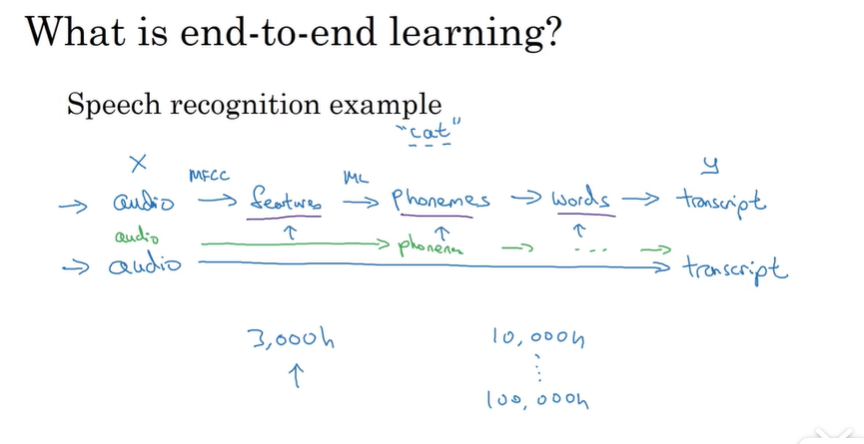 What is end-to-end learning?
Speech recognition example
"cat"
X MFCC ML y
→ audio → features → phonemes → words → transcript
audio → phonem → ... →
→ audio → transcript
3,000h 10,000h
100,000h